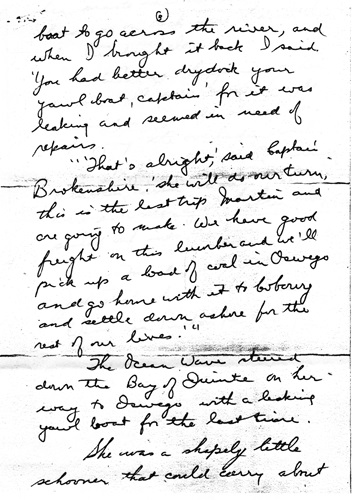 (2)
boat to go across the river, and
when I brought it back I said
'You had better drydock your
yawl boat, captain' for it was
leaking and seemed in need of
repairs.
"'That's alright', said Captain
Brokenshire. 'she will do our turn,
this is the last trip Martin and
are going to make. We have good
freight on this lumber and we'll
pick up a load of coal in Oswego
and go home with it to Cobourg
and settle down ashore for the
rest of our lives.'"
The Ocean Wave steered
down the Bay of Quinte on her
way to Oswego with a leaking
yawl boat for the last time.
She was a shapely little
schooner that could carry about